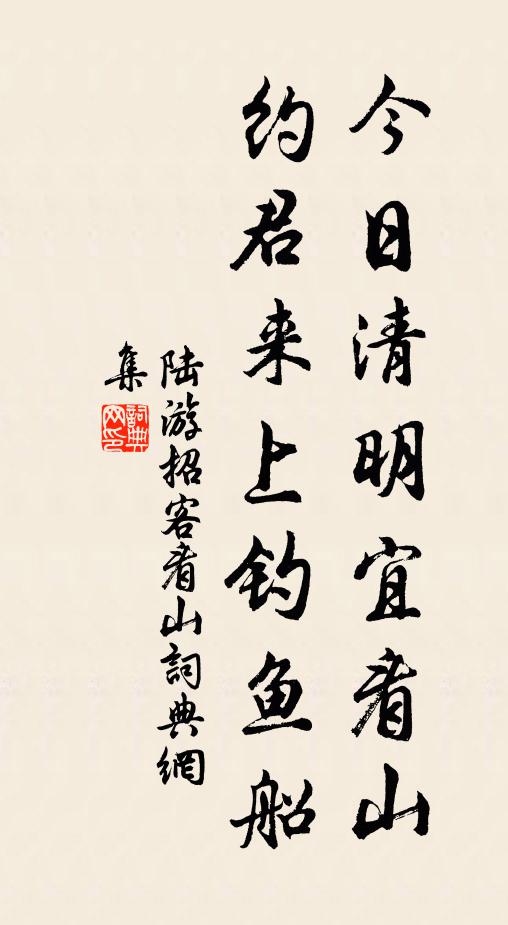 今日清明宜看山
约君来上钓鱼船
陆游招客看山詞典網
集
詞典
网印